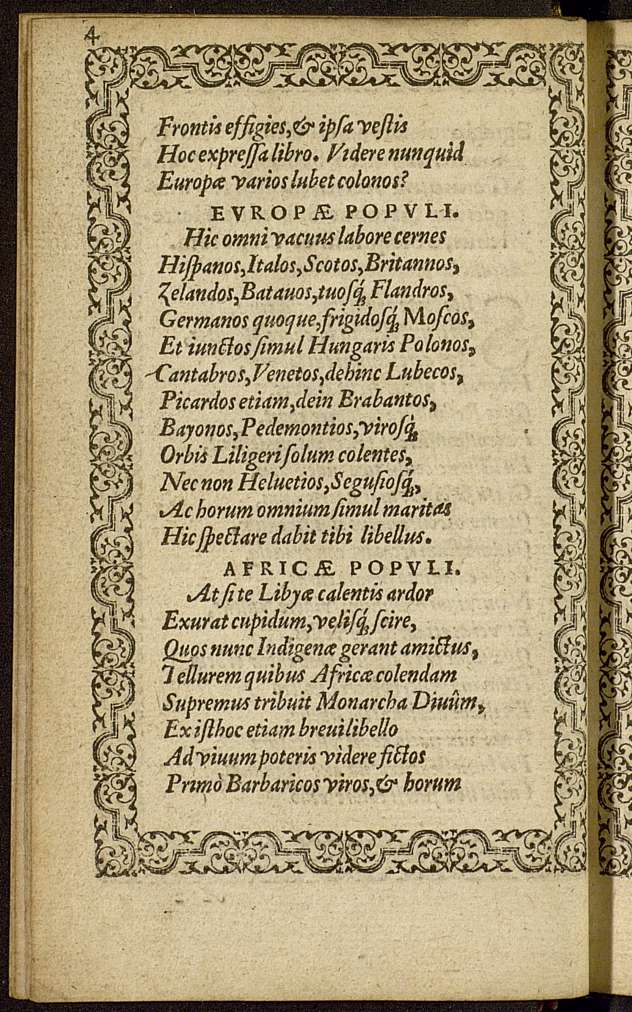 4
Frontis effigies, & ipſa veſtis
Hoc expreſſa libro. Videre nunquid
Europæ varios lubet colonos?
EVROPÆ POPVLI.
Hic omni vacuus labore cernes
Hiſpanos, Italos, Scotos, Britannos,
Zelandos, Batauos, tuoſq́, Flandros,
Germanos quoque, frigidoſq́, Moſcos,
Et iunctos ſimul Hungaris Polonos,
Cantabros, Venetos, dehinc Lubecos,
Picardos etiam, dein Brabantos,
Bayonos, Pedemontios, viroſq́,
Orbis Liligeri ſolum colentes,
Nec non Heluetios, Seguſioſq́,
Ac horum omnium ſimul maritas
Hic ſpectare dabit tibi libellus.
AFRICÆ POPVLI.
At ſi te Libyæ calentis ardor
Exurat cupidum, veliſq́, ſcire,
Quos nunc Indigenæ gerant amictus,
Tellurem quibus Africæ colendam
Supremus tribuit Monarcha Diuûm,
Ex iſthoc etiam breui libello
Ad viuum poteris videre fictos
Primò Barbaricos viros, & horum